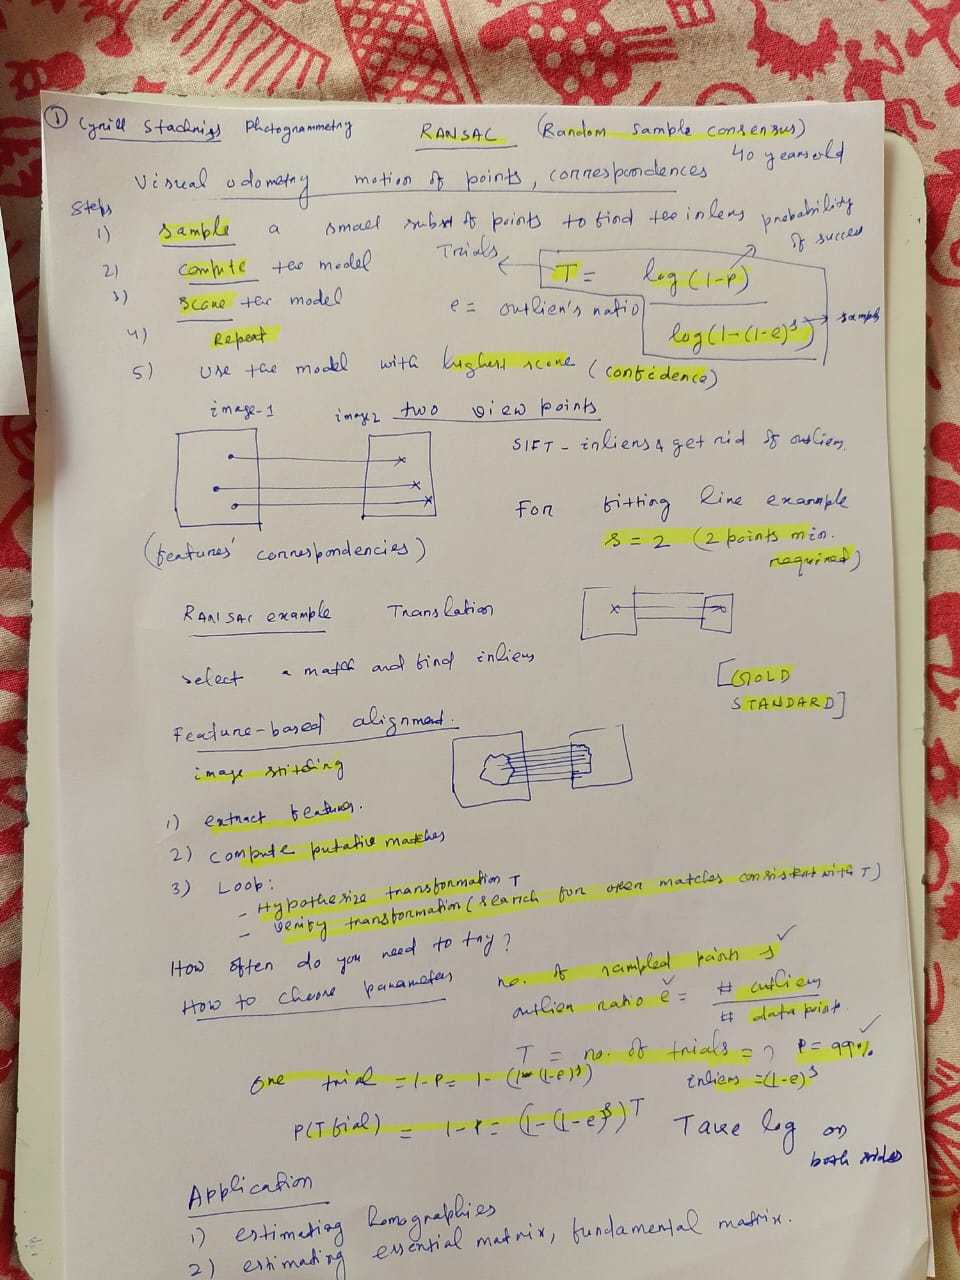 ① Cyrill Stachniss Photogrammetry RANSAC (Random sample consensus)
40 years old
Visual odometry motion of points, correspondences
Steps
1) Sample a small subset of points to find the inliers
probability of success
2) Compute the model
Trials T = log(1-p) / log(1-(1-e)^s) → sample
3) Score the model
e = outlier's ratio
4) Repeat
5) Use the model with highest score (confidence)
image-1 image2 two view points
SIFT - inliers & get rid of outliers.
For fitting line example
s = 2 (2 points min. required)
(features' correspondencies)
RANSAC example Translation
select a match and find inliers
[GOLD STANDARD]
Feature-based alignment.
image stitching
1) extract features.
2) compute putative matches
3) Loop:
- Hypothesize transformation T
- Verify transformation (search for other matches consistent with T)
How often do you need to try?
How to choose parameters
no. of sampled points s ✓
outlier ratio e = # outliers / # data point ✓
T = no. of trials = ? p = 99% ✓
One trial = 1-p = 1-(1-(1-e)^s)
inliers = (1-e)^s
P(T fial) = 1-p = (1-(1-e)^s)^T Take log on both sides
Application
1) estimating homographies
2) estimating essential matrix, fundamental matrix.